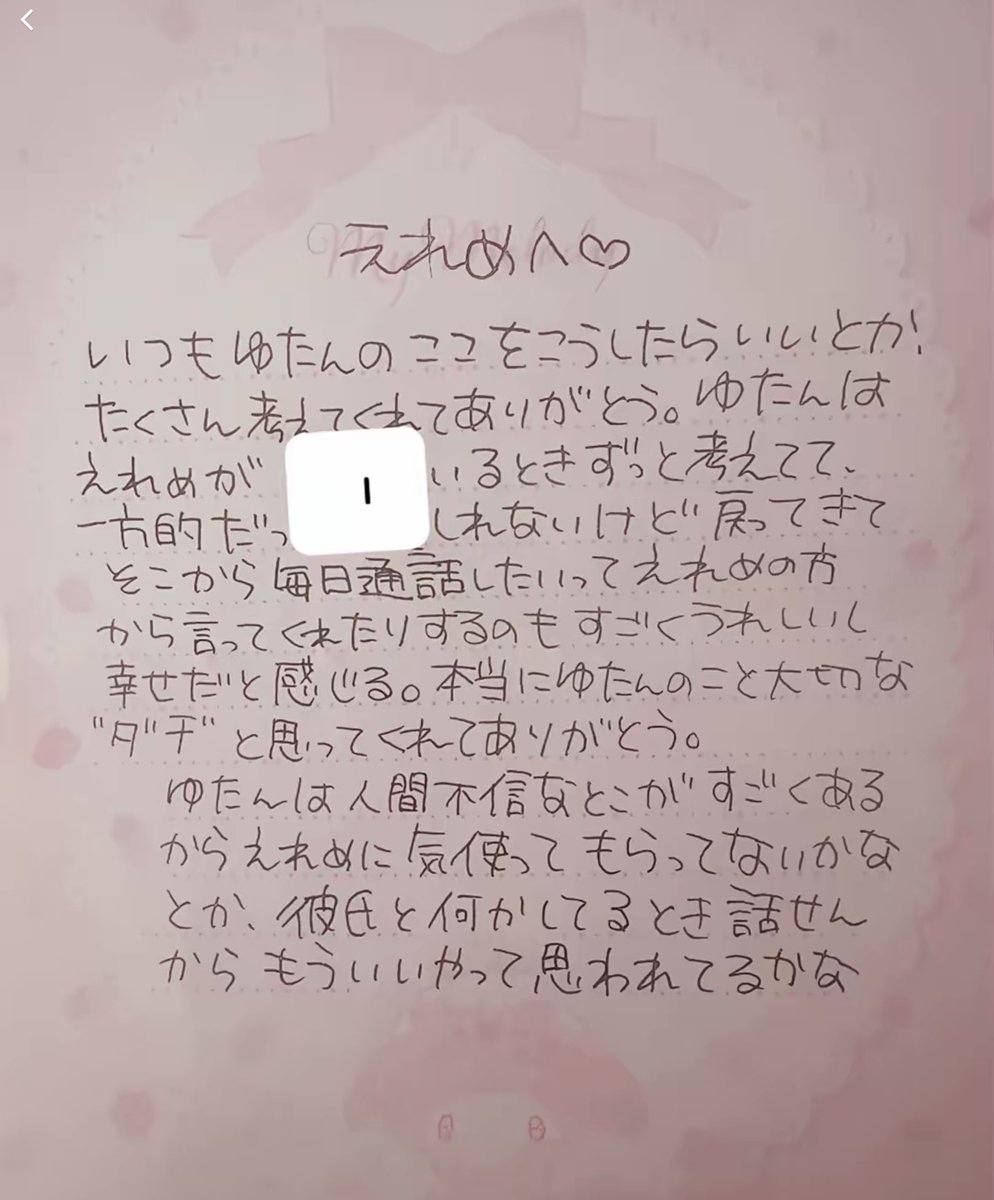 えれめへ♡
いつもゆたんのここをこうしたらいいとか!
たくさん考えてくれてありがとう。ゆたんは
えれめが いるときずっと考えてて、
一方的だっ しれないけど戻ってきて
そこから毎日通話したいってえれめの方
から言ってくれたりするのもすごくうれしいし
幸せだと感じる。本当にゆたんのこと大切な
"ダチ"と思ってくれてありがとう。
ゆたんは人間不信なとこがすごくある
からえれめに気使ってもらってないかな
とか、彼氏と何かしてるとき話せん
からもういいやって思われてるかな